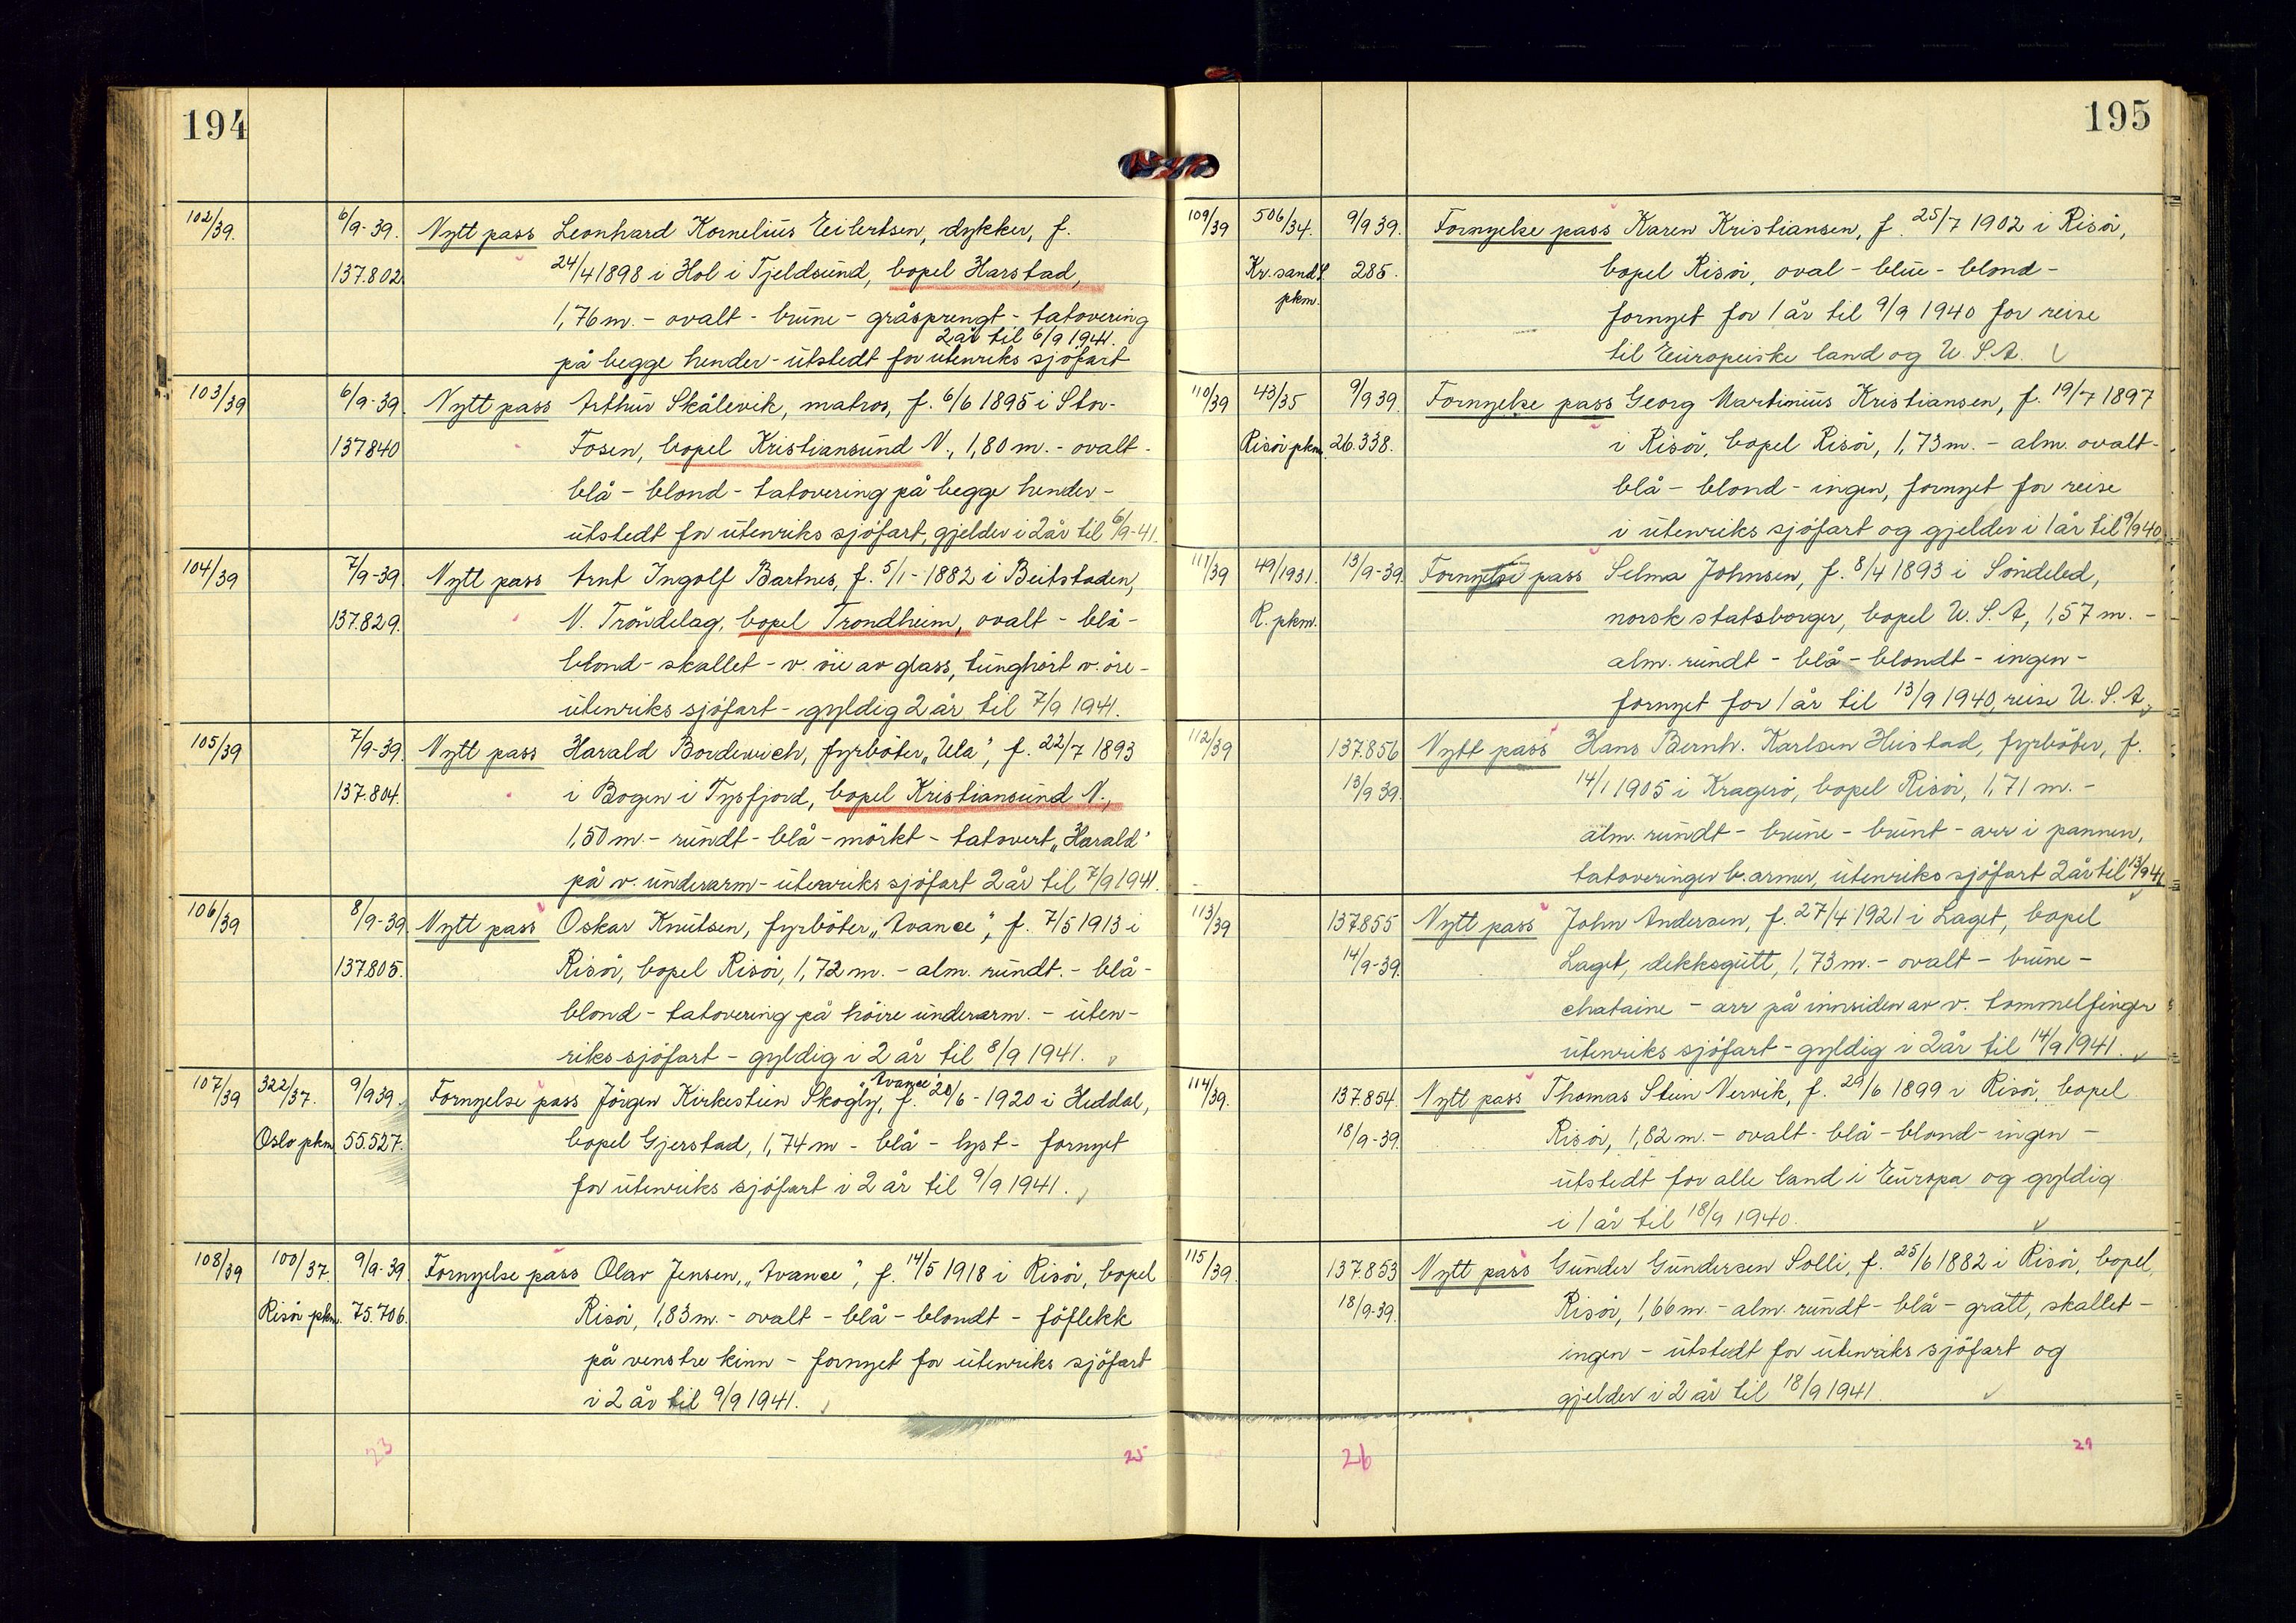 194
102/39. 6/9-39. Nytt pass Leonhard Kornelius Eilertsen, dykker, f.
137.802 24/4 1898 i Hol i Tjeldsund, bopel Harstad,
1,76 m. - ovalt - brune - gråsprengt - tatovering
2 år til 6/9 1941.
på begge hender - utstedt for utenriks sjöfart
103/39 6/9-39. Nytt pass Arthur Skålevik, matros, f. 6/6 1895 i Stor-
137840 Fosen, bopel Kristiansund N., 1,80 m. - ovalt -
blå - blond - tatovering på begge hender -
utstedt for utenriks sjöfart, gjelder i 2 år til 6/9-41.
104/39 7/9-39. Nytt pass Arnt Ingolf Bartnes, f. 5/1-1882 i Beitstaden,
137.829. N. Tröndelag, bopel Trondheim, ovalt - blå -
blond - skallet - v. öie av glass, tunghört v. öre -
utenriks sjöfart - gyldig 2 år til 7/9 1941.
105/39 7/9-39. Nytt pass Harald Borderwich, fyrböter „Ula", f. 22/7 1893
137.804. i Bogen i Tysfjord, bopel Kristiansund N.,
1,50 m. - rundt - blå - mörkt - tatovert „Harald"
på v. underarm - utenriks sjöfart 2 år til 7/9 1941.
106/39 8/9-39. Nytt pass Oskar Knutsen, fyrböter „Avance", f. 7/5 1913 i
137805. Risör, bopel Risör, 1,72 m. - alm. rundt. - blå -
blond - tatovering på höire underarm. - uten-
riks sjöfart - gyldig i 2 år til 8/9 1941.
„Avance"
107/39 322/37. 9/9 39. Fornyelse pass Jörgen Kirkestuen Skogly, f. 20/6-1920 i Heddal,
Oslo pkm 55.527. bopel Gjerstad, 1,74 m - blå - lyst - fornyet
for utenriks sjöfart i 2 år til 9/9 1941.
108/39 100/37. 9/9-39. Fornyelse pass Olav Jensen, „Avance", f. 14/5 1918 i Risör, bopel
Risör pkm. 75.706. Risör, 1,83 m. - ovalt - blå - blondt - föflekk
på venstre kinn - fornyet for utenriks sjöfart
i 2 år til 9/9 1941.
23 25
195
109/39 506/34. 9/9 39. Fornyelse pass Karen Kristiansen, f. 25/7 1902 i Risör,
Kr.sand S. 285. bopel Risör, oval - blue - blond -
pkm. fornyet for 1 år til 9/9 1940 for reise
til Europeiske land og U.S.A.
110/39 43/35 9/9 39. Fornyelse pass Georg Martinius Kristiansen, f. 19/7 1897
Risör pkm. 26.338. i Risör, bopel Risör, 1,73 m. - alm. ovalt -
blå - blond - ingen, fornyet for reise
i utenriks sjöfart og gjelder i 1 år til 9/9 40
111/39 49/1931. 13/9-39. Fornyelse pass Selma Johnsen, f. 8/4 1893 i Söndeled,
R. pkm. norsk statsborger, bopel U.S.A, 1,57 m. -
alm. rundt - blå - blondt - ingen -
fornyet for 1 år til 13/9 1940, reise U.S.A,
112/39 137.856 Nytt pass Hans Bernh. Karlsen Heistad, fyrböter, f.
13/9 39. 14/1 1905 i Kragerö, bopel Risör, 1,71 m. -
alm. rundt - brune - brunt - arr i pannen,
tatoveringer b. armer, utenriks sjöfart 2 år til 13/9 41
113/39 137855 Nytt pass John Andersen, f. 27/4 1921 i Laget, bopel
14/9-39. Laget, dekksgutt, 1,73 m. - ovalt - brune -
chataine - arr på innsiden av v. tommelfinger
utenriks sjöfart - gyldig i 2 år til 14/9 1941.
114/39. 137.854. Nytt pass Thomas Stein Vervik, f. 29/6 1899 i Risör, bopel
18/9-39. Risör, 1,82 m. - ovalt - blå - blond - ingen -
utstedt for alle land i Europa og gyldig
i 1 år til 18/9 1940.
115/39. 137.853 Nytt pass Gunder Gundersen Solli, f. 25/6 1882 i Risör, bopel,
18/9-39. Risör, 1,66 m. - alm. rundt - blå - grått, skallet -
ingen - utstedt for utenriks sjöfart og
gjelder i 2 år til 18/9 1941.
26 29